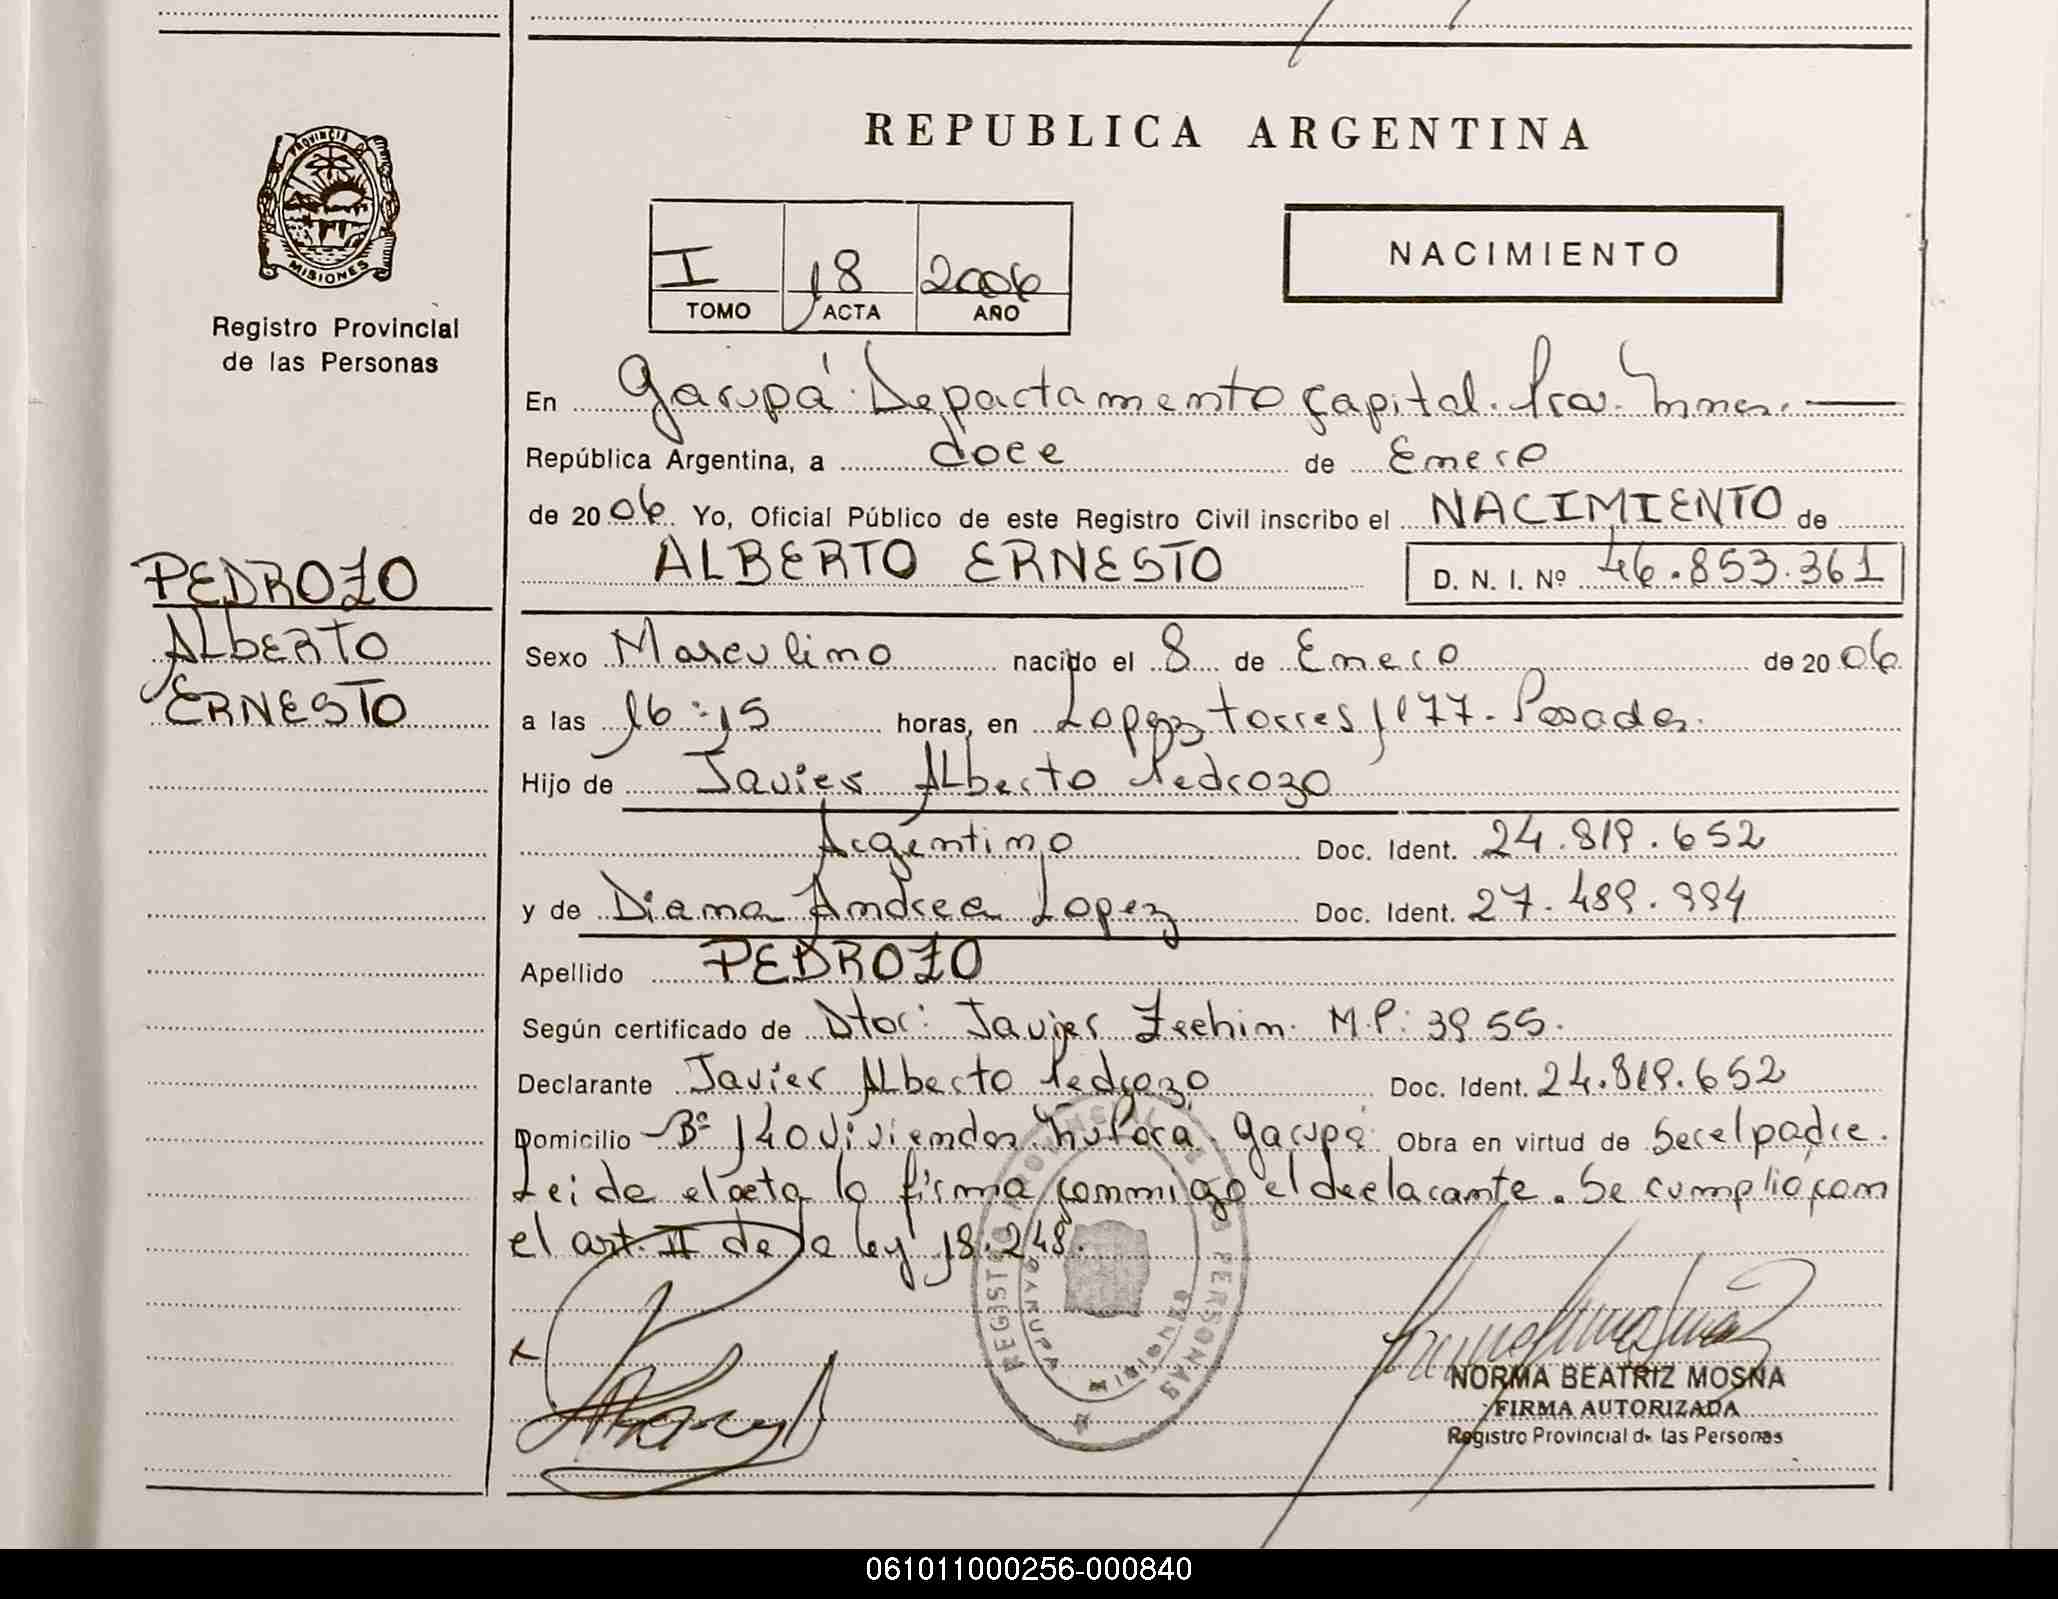 PROVINCIA D
MISIONES
Registro Provincial
de las Personas
PEDROZO
ALBERTO
ERNESTO
REPUBLICA ARGENTINA
I 18 2006
TOMO ACTA AÑO
NACIMIENTO
En Garupá Departamento Capital. Pcia. Mnes.
República Argentina, a doce de Enero
de 2006 Yo, Oficial Público de este Registro Civil inscribo el NACIMIENTO de
ALBERTO ERNESTO D. N. I. Nº 46.853.361
Sexo Masculino nacido el 8 de Enero de 2006
a las 16:15 horas, en Lopez torres 1177. Posadas.
Hijo de Javier Alberto Pedrozo
Argentino Doc. Ident. 24.819.652
y de Diana Andrea Lopez Doc. Ident. 27.489.994
Apellido PEDROZO
Según certificado de Dtor: Javier M.P: 3955.
Declarante Javier Alberto Pedrozo Doc. Ident. 24.819.652
Domicilio Bº 140 viviendas Garupá Obra en virtud de Ser el padre.
Leida el acta la firma conmigo el declarante. Se cumplió con
el art. II de la ley 18.248.
REGISTRO PROVINCIAL DE LAS PERSONAS
GARUPA MISIONES
NORMA BEATRIZ MOSNA
FIRMA AUTORIZADA
Registro Provincial de las Personas
061011000256-000840